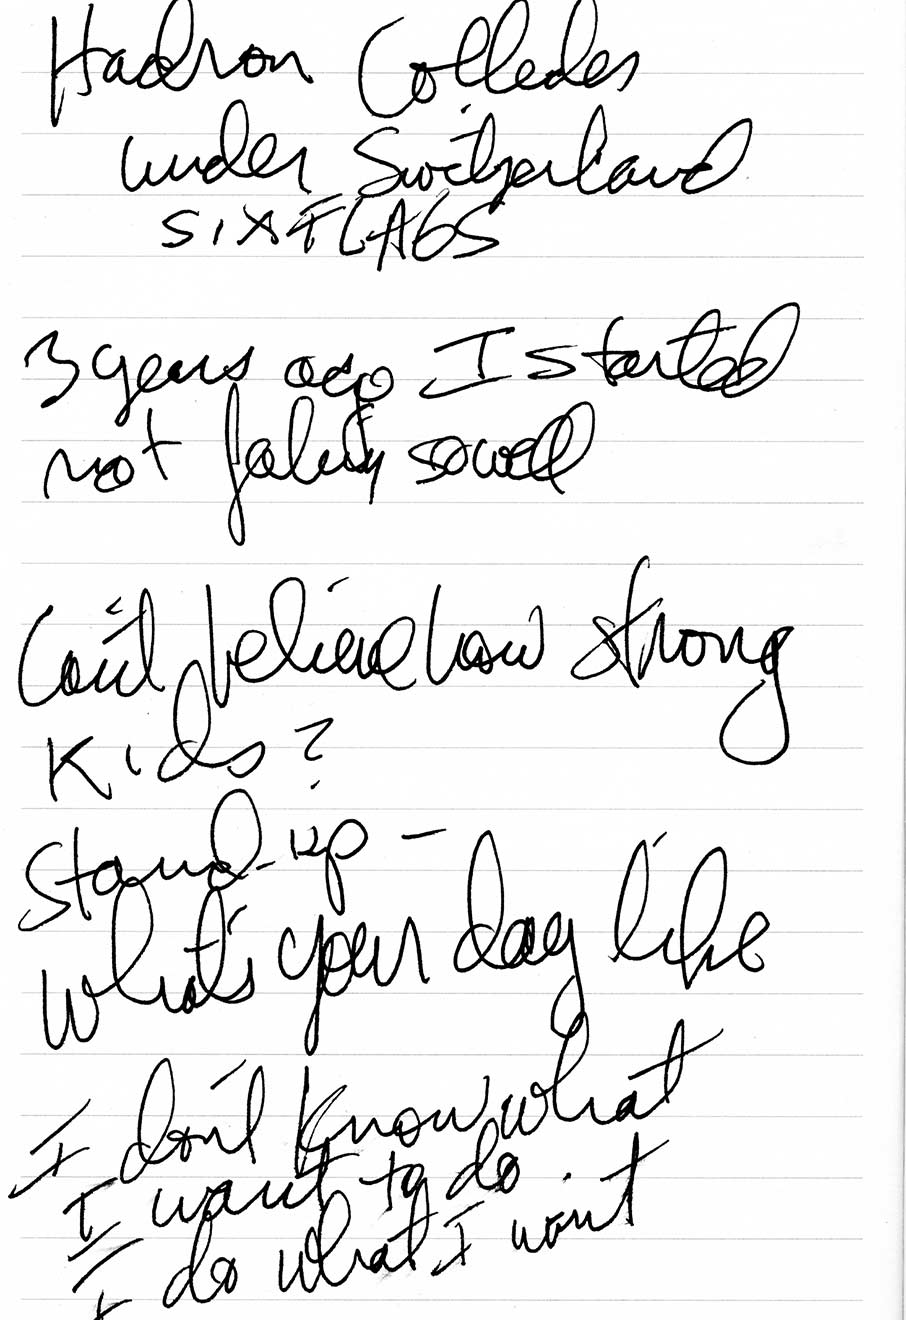 Hadron Collider
under Switzerland
SIX FLAGS
3 years ago I started
not so well
Can't believe how strong
Kids?
Stand-up –
What's your day like
I don't know what
I want to do.
I do what I want